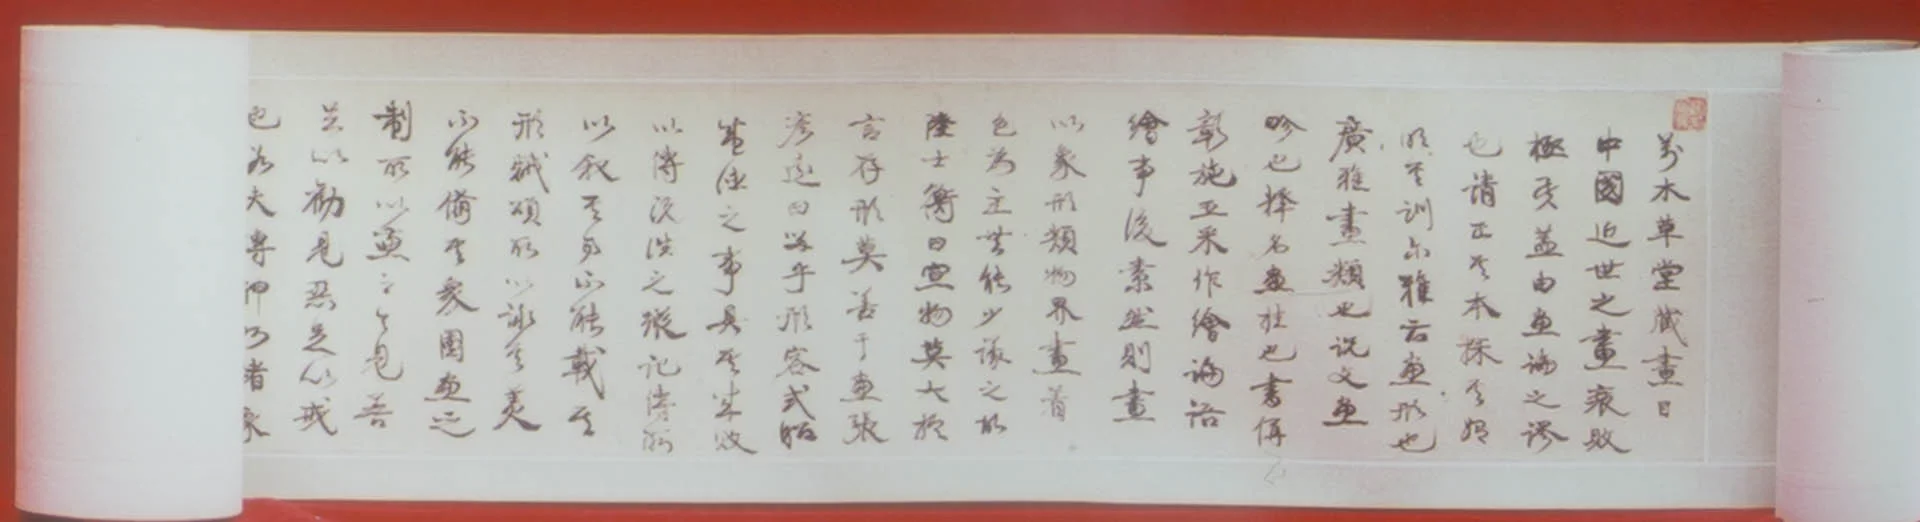 萬木草堂藏畫目
中國近世之畫衰敗
極矣蓋由畫論之謬
也請正其本探其始
明其訓尔雅云畫形也
廣雅畫類也說文畫
畛也釋名畫挂也書偁
彰施五采作繪論語
繪事後素然則畫
以象形類物界畫着
色為主無能少議之故
陸士衡曰宣物莫大於
言存形莫善于畫張
彥遠曰留乎形容式昭
盛德之事具其成敗
以傳既往之蹤記傳所
以敘其事不能載其
形賦頌所以詠其美
不能備其象圖畫之
制所以兼之也見善
足以勸見惡足以戒
也若夫專精乃者眾